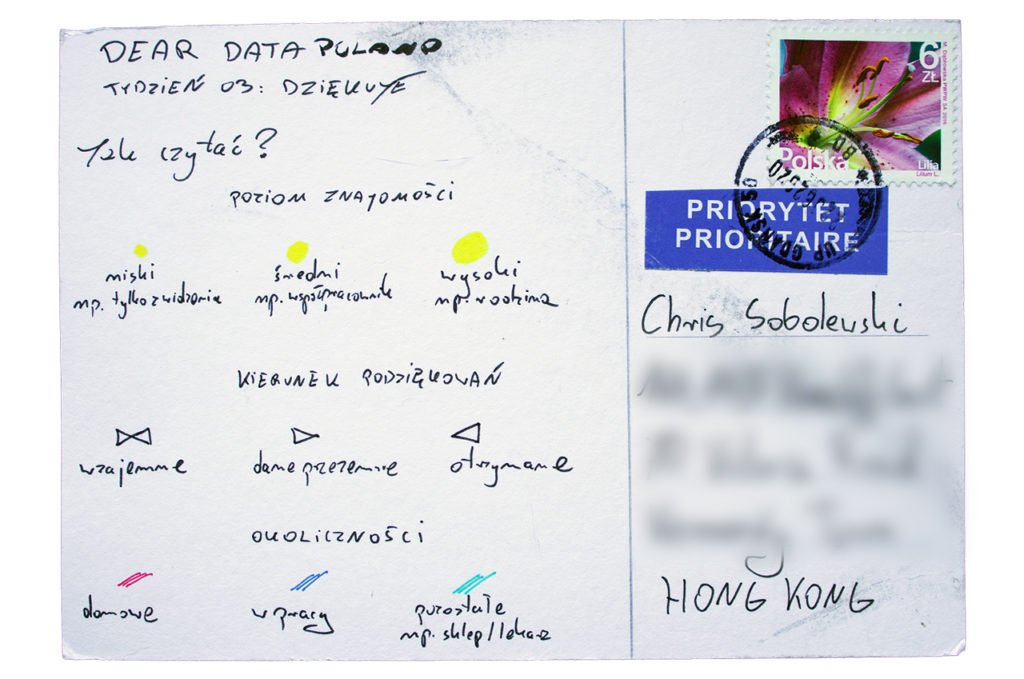 DEAR DATA POLAND
TYDZIEŃ 03: DZIĘKUJĘ
Jak czytać?
POZIOM ZNAJOMOŚCI
niski
np. tylko z widzenia
średni
np. współpracownik
wysoki
np. rodzina
KIERUNEK PODZIĘKOWAŃ
wzajemne
dane przeze mnie
otrzymane
OKOLICZNOŚCI
domowe
w pracy
pozostałe
np. sklep/lekarz
6
ZŁ
Polska
Lilia
Lilium L.
UP GDAŃSK 50
PRIORYTET
PRIORITAIRE
Chris Sobolewski
HONG KONG